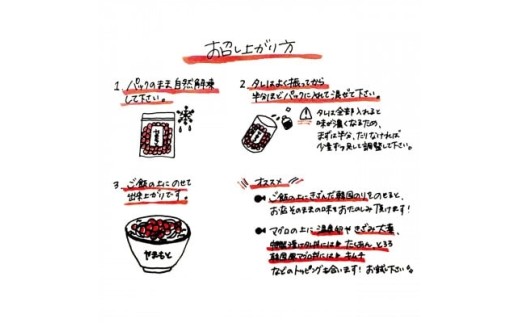 お召し上がり方
1. パックのまま自然解凍
して下さい。
2. タレはよく振ってから
半分ほどパックに入れて混ぜて下さい。
タレは全部入れると
味が濃くなるため、
まずは半分、たりなければ
少量ずつ足して調整して下さい。
3. ご飯の上にのせて
出来上がりです。
やまもと
オススメ
ご飯の上にきざんだ韓国のりをのせると、
お店そのままの味をおたのしみ頂けます!
マグロの上に温泉卵やきざみ大葉、
特製漬け丼には たくあん とろろ
韓国風マグロ丼には キムチ
などのトッピングも合います! お試し下さい。